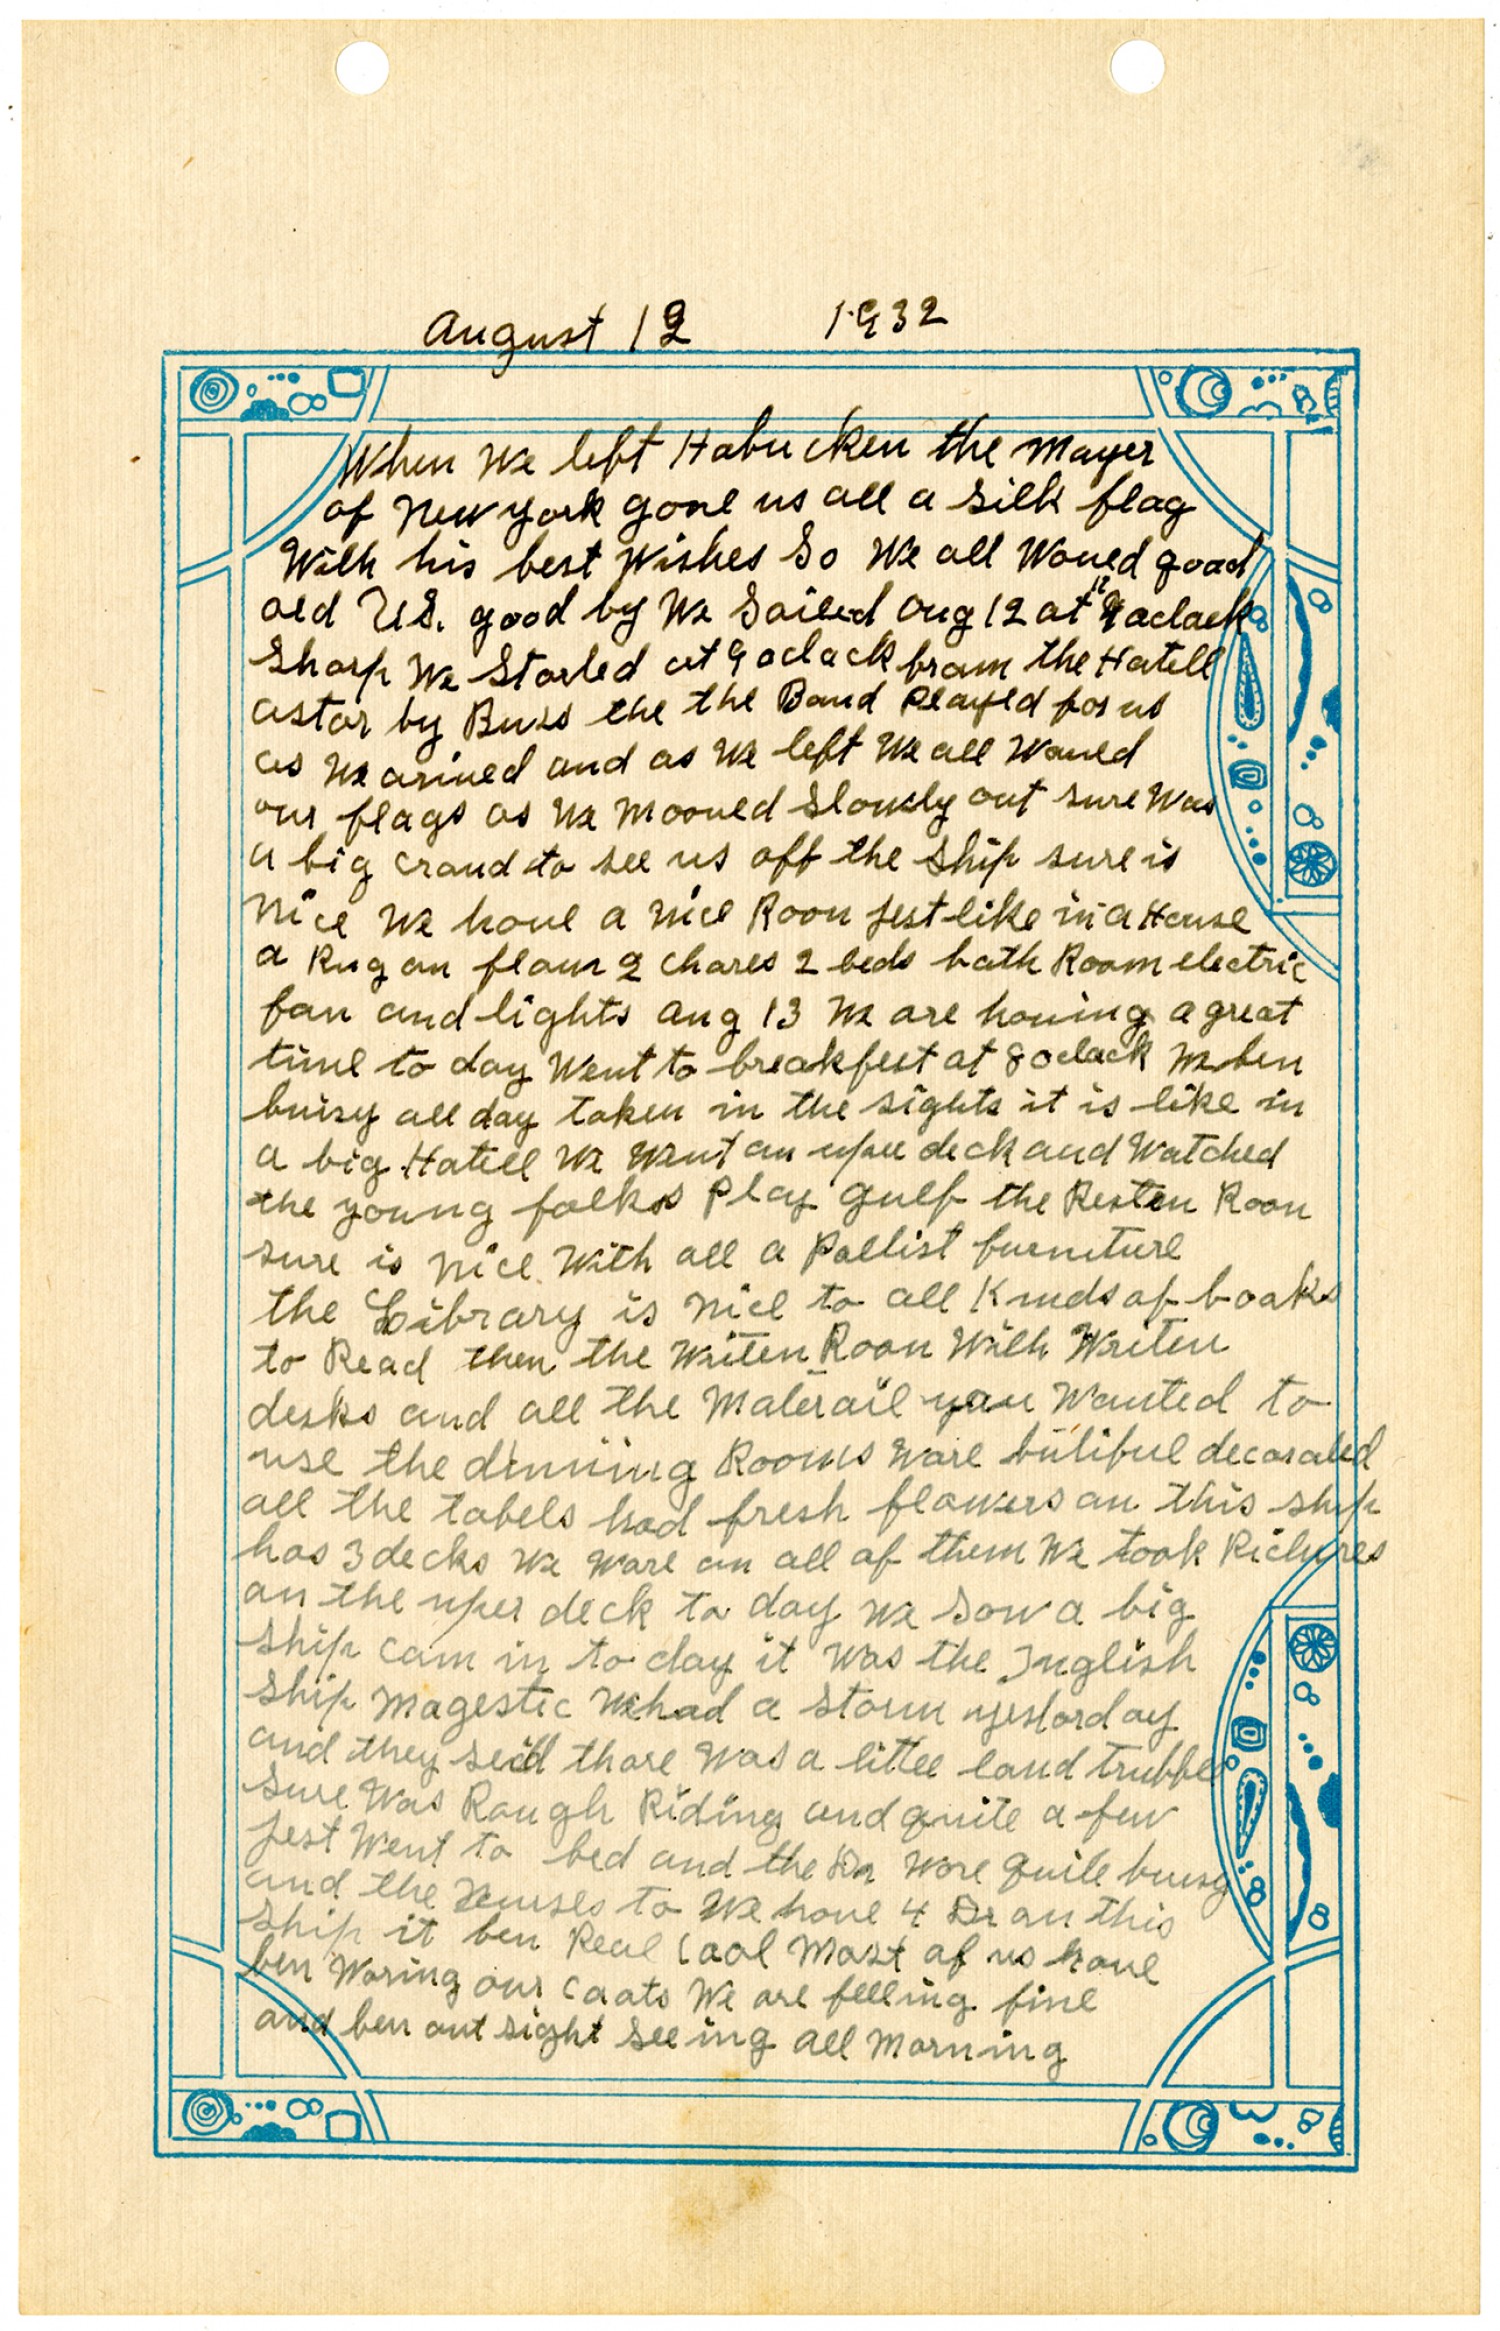 August 12 1932
When We left Habucken the Mayer
of New York gave us all a silk flag
With his best Wishes So We all Waved good
old U.S. good by We Sailed Aug 12 at 12 oclack
Sharp We Started at 9 oclack fram the Hatell
astor by Buss the the Band Played for us
as We arived and as We left We all Waved
our flags as We Mooved Slowly out sure Was
a big Craud to see us off the Ship sure is
Nice We have a Nice Room jest like in a House
a Rug on floar 2 Chares 2 beds bath Room electric
fan and lights Aug 13 We are having a great
time to day Went to breakfest at 8 oclack We ben
buizy all day taken in the sights it is like in
a big Hatell We Went an uper deck and Watched
the young folks Play gulf the Resten Room
sure is Nice With all a Pallist furniture
the Library is Nice to all Kinds of books
to Read then the Writen Room With Writen
desks and all the Materail you Wanted to
use the dinning Rooms Ware butiful decorated
all the tabels had fresh flowers an this ship
has 3 decks We Ware an all of them We took Pichures
an the uper deck to day We Saw a big
Ship Cam in to day it Was the Inglish
Ship Magestic We had a Storm yestorday
and they seid thare Was a littel land trubbel
Sure Was Rough Riding and quite a few
jest Went to bed and the Dr Ware quite buisy
and the Nurses to We have 4 Dr an this
Ship it ben Real Cool Most of us have
ben Waring our Coats We are felling fine
and ben out sight seeing all Morning